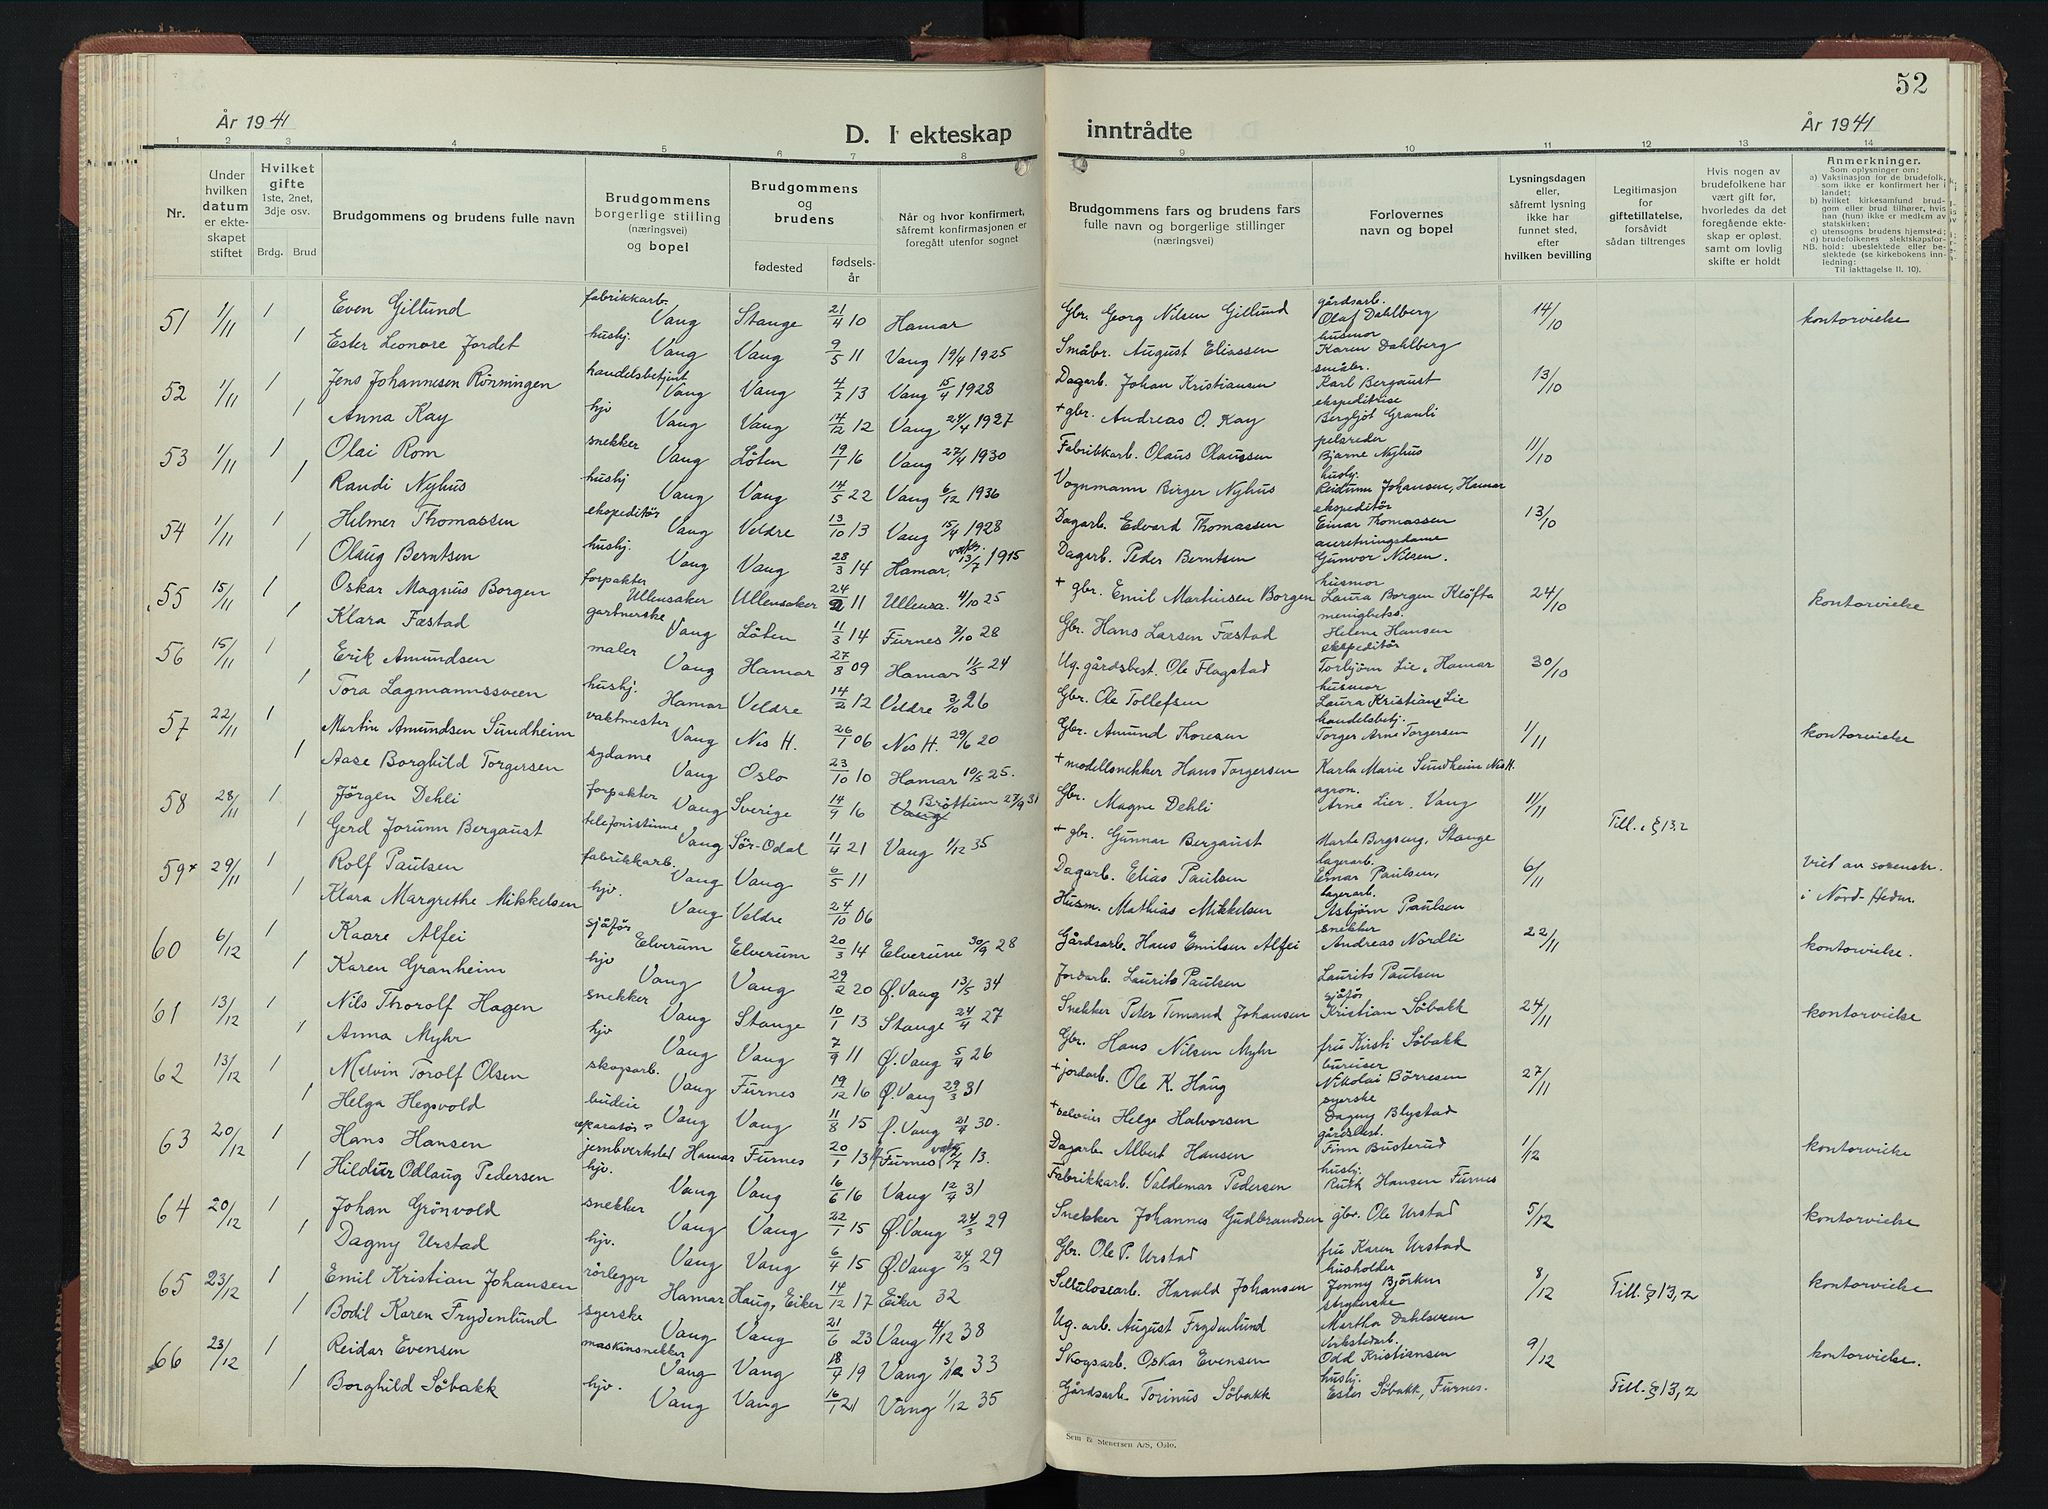 52
År 1941
D. I ekteskap inntrådte
År 1941
1 2 3 4 5 6 7 8 9 10 11 12 13 14
Nr.
Under hvilken datum er ekteskapet stiftet
Hvilket gifte 1ste, 2net, 3dje osv.
Brdg. Brud
Brudgommens og brudens fulle navn
Brudgommens borgerlige stilling (næringsvei) og bopel
Brudgommens og brudens
fødested
fødselsår
Når og hvor konfirmert, såfremt konfirmasjonen er foregått utenfor sognet
Brudgommens fars og brudens fars fulle navn og borgerlige stillinger (næringsvei)
Forlovernes navn og bopel
Lysningsdagen eller, såfremt lysning ikke har funnet sted, efter hvilken bevilling
Legitimasjon for giftetillatelse, forsåvidt sådan tiltrenges
Hvis nogen av brudefolkene har vært gift før, hvorledes da det foregående ekteskap er opløst, samt om lovlig skifte er holdt
Anmerkninger.
Som oplysninger om:
a) Vaksinasjon for de brudefolk, som ikke er konfirmert her i landet;
b) hvilket kirkesamfund brudgom eller brud tilhører, hvis han (hun) ikke er medlem av statskirken;
c) utensogns brudens hjemsted;
d) brudefolkenes slektskapsforhold:
NB. ubeslektede eller beslektede (se kirkebokens innledning: Til iakttagelse II. 10).
51 1/11 1 Even Gillund fabrikkarb. Vang Stange 21/4 10 Hamar Gbr. Georg Nilsen Gillund gårdsarb. Olaf Dahlberg 14/10 kontorvielse
1 Ester Leonore Jordet hushj. Vang Vang 9/5 11 Vang 19/4 1925 Småbr. August Eliassen husmor Karen Dahlberg
52 1/11 1 Jens Johannesen Rönningen handelsbetjent Vang Vang 4/7 13 Vang 15/4 1928 Dagarb. Johan Kristiansen småbr. Karl Bergaust 13/10
1 Anna Kay hjv Vang Vang 14/12 12 Vang 24/4 1927 + gbr. Andreas O. Kay ekspeditrise Bergljot Grauli
53 1/11 1 Olai Rom snekker Vang Löten 19/1 16 Vang 27/4 1930 Fabrikkarb. Olaus Olaussen pelsreder Bjarne Nyhus 11/10
1 Randi Nyhus hushj Vang Vang 14/5 22 Vang 6/12 1936 Vognmann Birger Nyhus hushj. Reidunn Johansen, Hamar
54 1/11 1 Helmer Thomassen ekspeditör Vang Veldre 13/10 13 Vang 15/4 1928 Dagarb. Edvard Thomassen ekspeditör Einar Thomassen 13/10
1 Olaug Berntsen hushj. Vang Vang 28/3 14 Hamar, vaks. 13/7 1915 Dagarb. Peder Berntsen anretningsdame Gunvor Nilsen.
55 15/11 1 Oskar Magnus Borgen forpakter Ullensaker Ullensaker 24/2 11 Ullensa. 4/10 25 + gbr. Emil Martinsen Borgen husmor Laura Borgen Klöfta 24/10 kontorvielse
1 Klara Fæstad gartnerske Vang Löten 11/3 14 Furnes 7/10 28 Gbr. Hans Larsen Fæstad menighetss. Helene Hansen
56 15/11 1 Erik Amundsen maler Vang Hamar 27/8 09 Hamar 11/5 24 Ug. gårdsbest. Ole Flagstad ekspeditör Torbjörn Lie, Hamar 30/10
1 Tora Lagmannssveen hushj. Hamar Veldre 14/2 12 Veldre 3/10 26 Gbr. Ole Tollefsen husmor Laura Kristiane Lie
57 22/11 1 Martin Amundsen Sundheim vaktmester Vang Nes H. 26/1 06 Nes H. 29/6 20 Gbr. Amund Thoresen handelsbetj. Torger Arne Torgersen 1/11 kontorvielse
1 Aase Borghild Torgersen sydame Vang Oslo 23/10 10 Hamar 10/5 25. + modellsnekker Hans Torgersen Karla Marie Sundheim Nes H.
58 28/11 1 Jörgen Dehli forpakter Vang Sverige 14/9 16 Vang Bröttum 27/9 31 Gbr. Magne Dehli agron. Arne Lier, Vang 11/11
1 Gerd Jorunn Bergaust telefonistinne Vang Sör-Odal 11/4 21 Vang 1/12 35 + gbr. Gunnar Bergaust Marte Bergseng, Stange Till. § 13.2
59 x 29/11 1 Rolf Paulsen fabrikkarb. Vang Vang 6/5 11 Dagarb. Elias Paulsen lagerarb. Einar Paulsen, 6/11 viet av sorenskr.
1 Klara Margrethe Mikkelsen hjv. Vang Veldre 24/10 06 Husm. Mathias Mikkelsen lagerarb. Asbjörn Paulsen i Nord-Hedm.
60 6/12 1 Kaare Alfei sjåför Elverum Elverum 20/3 14 Elverum 30/9 28 Gårdsarb. Hans Emilsen Alfei snekker Andreas Nordli 22/11 kontorvielse.
1 Karen Granheim hjv Vang Vang 29/2 20 Ø. Vang 13/5 34 Jordarb. Laurits Paulsen Laurits Paulsen
61 13/12 1 Nils Thorolf Hagen snekker Vang Stange 10/1 13 Stange 24/4 27 Snekker Peter Timand Johansen sjåför Kristian Söbakk 24/11 kontorvielse
1 Anna Myhr hjv Vang Vang 7/9 11 Ø. Vang 5/4 26 Gbr. Hans Nilsen Myhr fru Kirsti Söbakk
62 13/12 1 Melvin Torolf Olsen skogsarb. Vang Furnes 19/12 16 Ø. Vang 29/3 31 + jordarb. Ole K. Haug buruiser Nikolai Börresen 27/11
1 Helga Hegsvold budeie Vang Vang 11/8 15 Ø. Vang 21/4 30. + selveier Helge Halvorsen syerske Dagny Blystad
63 20/12 1 Hans Hansen reparatör jernbverksted Hamar Furnes 20/1 13 Furnes vaks. 7/7 13. Dagarb. Albert Hansen gårdsbest. Finn Busterud 1/12 kontorvielse
1 Hildur Odlaug Pedersen hjv. Vang Vang 16/6 16 Vang 12/4 31 Fabrikkarb. Valdemar Pedersen hushj. Ruth Hansen Furnes
64 20/12 1 Johan Grönvold snekker Vang Vang 22/1 15 Ø. Vang 24/3 29 Snekker Johannes Gudbrandsen gbr. Ole Urstad 5/12 kontorvielse
1 Dagny Urstad hjv. Vang Vang 6/4 15 Ø. Vang 24/3 29 Gbr. Ole P. Urstad fru Karen Urstad
65 23/12 1 Emil Kristian Johansen rörlegger Hamar Haug, Eiker 14/12 17 Eiker 32 Sellulosearb. Harald Johansen husholder Jenny Björken 8/12 Till. § 13,2 kontorvielse
1 Bodil Karen Frydenlund syerske Vang Vang 21/6 23 Vang 4/12 38 Ug. arb. August Frydenlund strykerske Martha Dahlsveen
66 23/12 1 Reidar Evensen maskinsnekker Vang Vang 18/9 19 Vang 3/12 33 Skogsarb. Oskar Evensen virkstedarb. Odd Kristiansen 9/12 kontorvielse.
1 Borghild Söbakk hjv. Vang Vang 16/1 21 Vang 1/12 35 Gårdsarb. Torinus Söbakk hushj. Ester Söbakk, Furnes. Till. § 13,2
Sem & Stenersen A/S, Oslo.